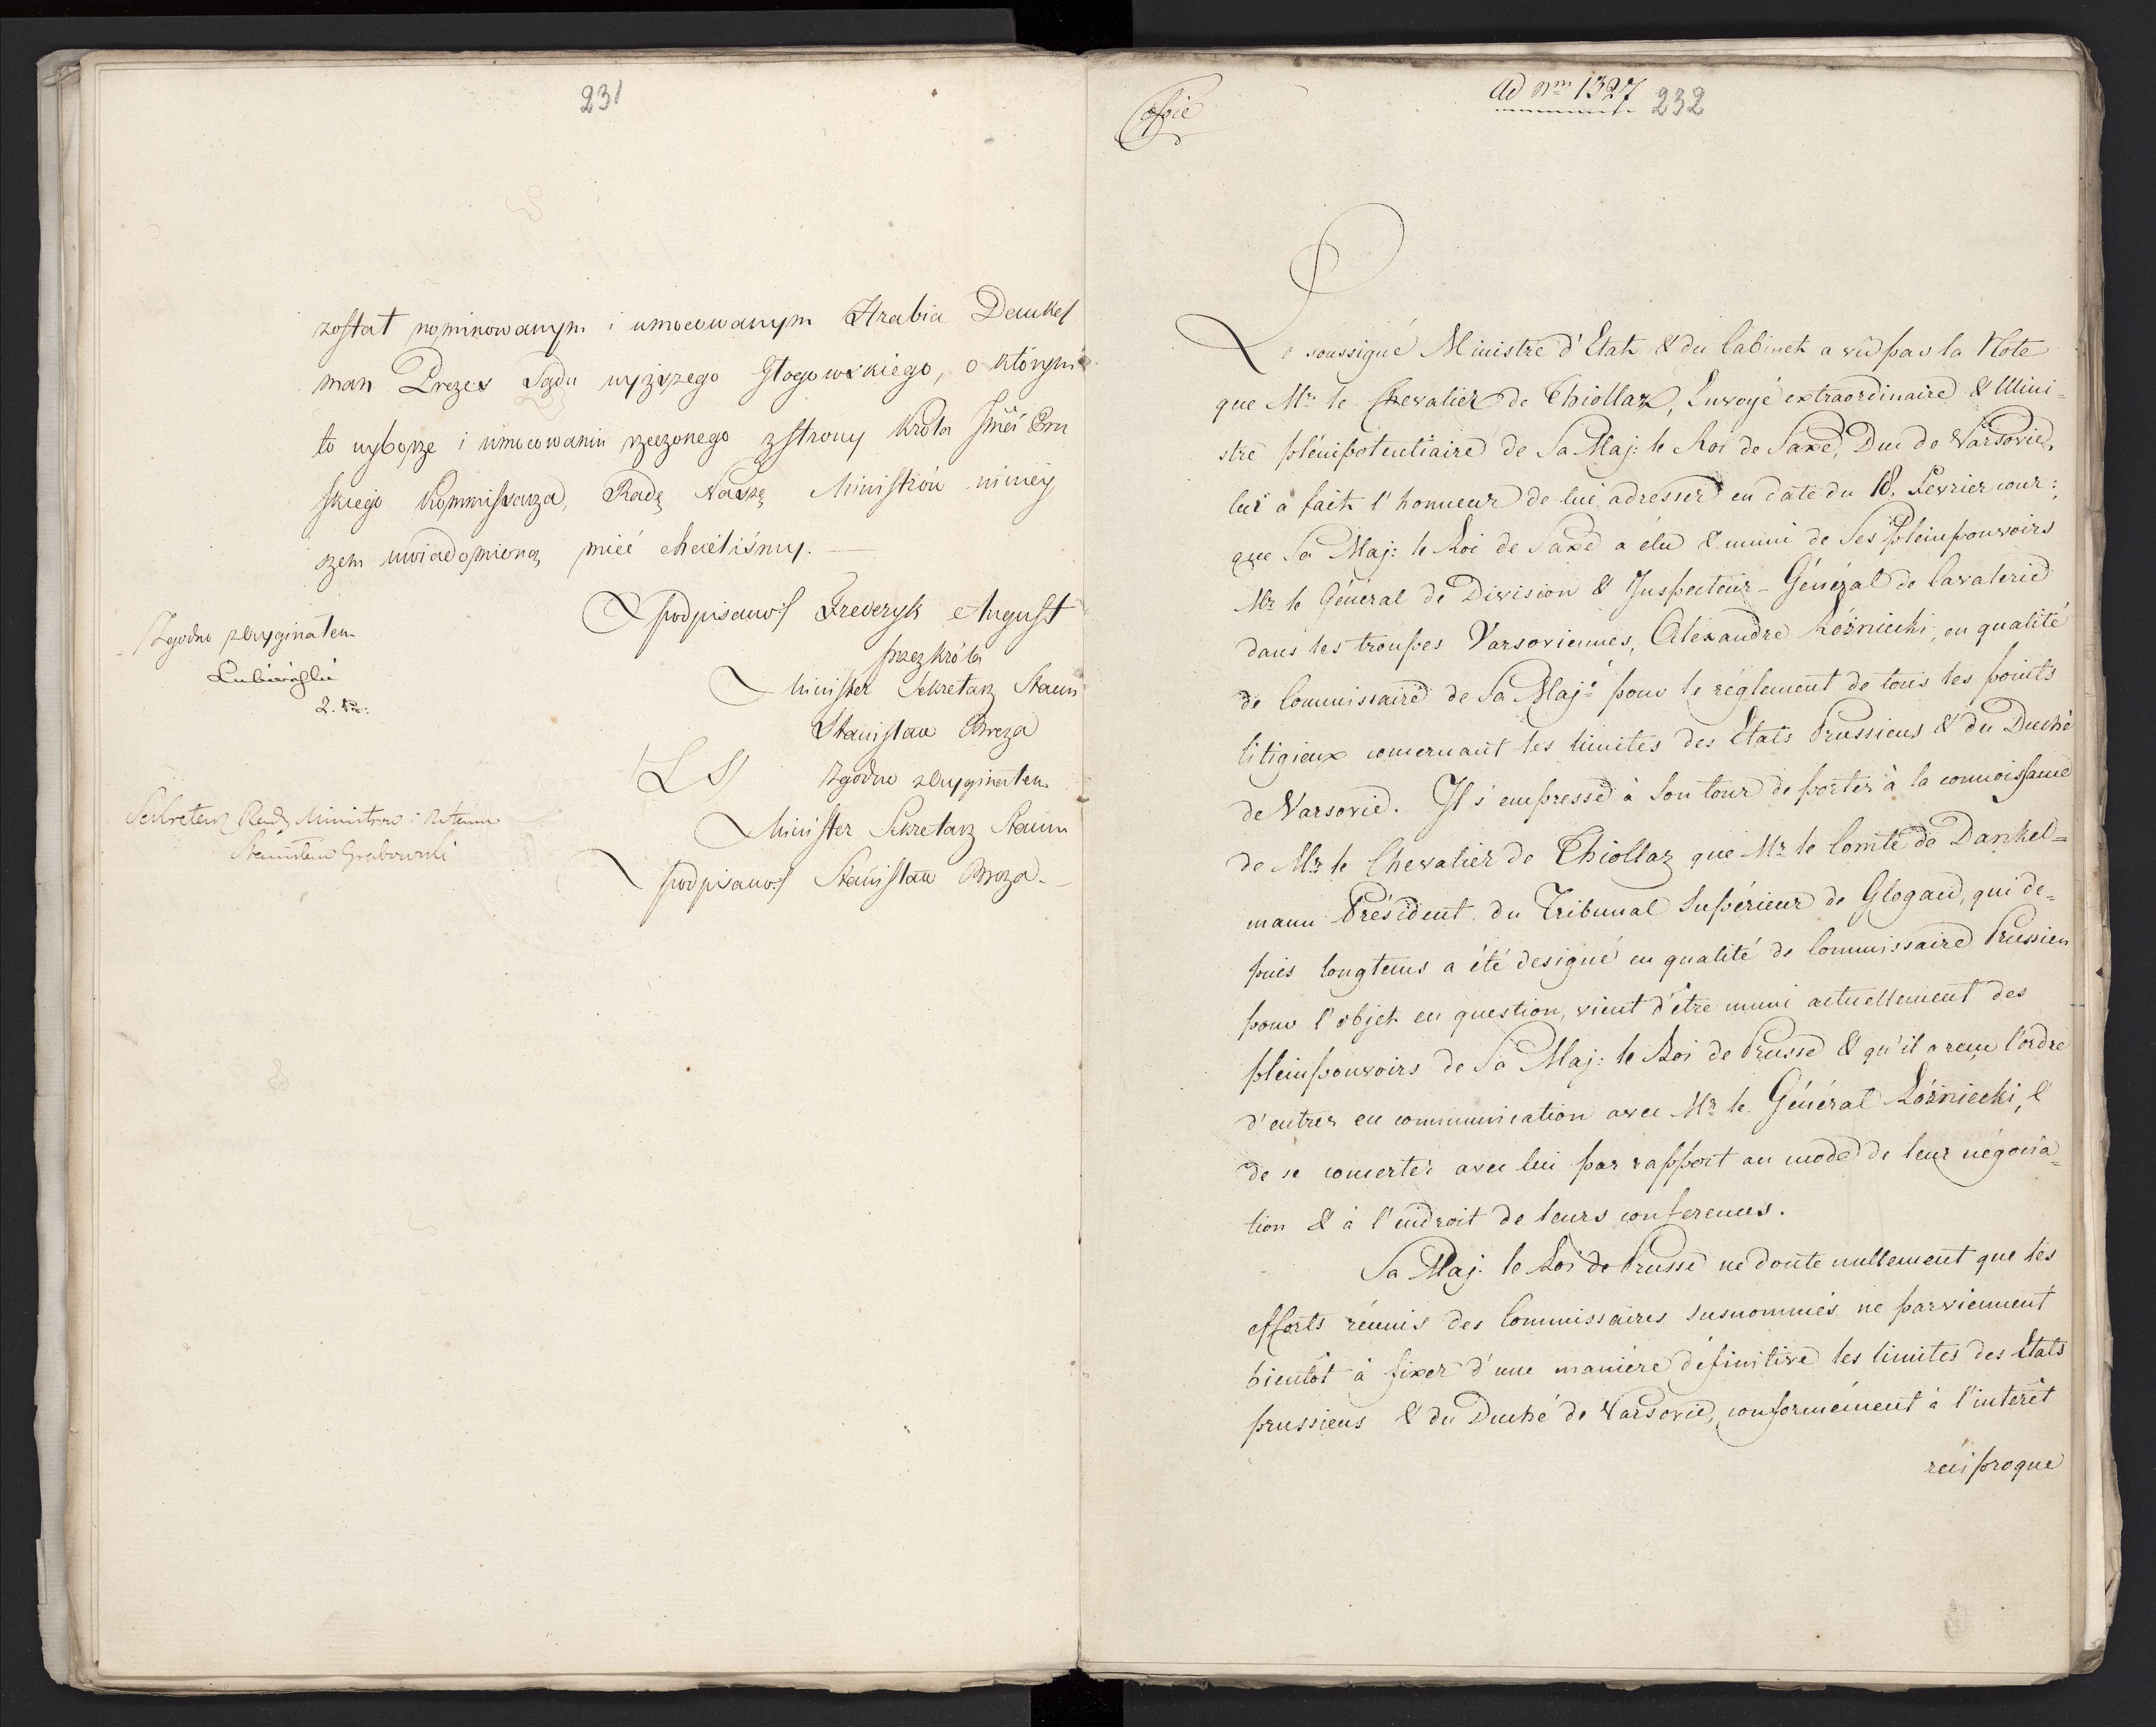 231
zostat nominowanym i umocowanym Hrabia Denkel
man Prezes Sądu wyższego Głogowskiego, o którym
to wyborze i umocowaniu rzeczonego z strony Króla Jmći Pru
skiego Kommissarza, Radę Naszę Ministrów niniey
szem uwiadomioną mieć chcieliśmy. —
podpisano/ Frederyk August
przez Króla
Minister Sekretarz Stanu
Stanisław Breza
LS/ Zgodno z Oryginałem
Minister Sekretarz Stanu
podpisano/ Stanisław Breza. —
Zgodno z Oryginałem
Lubieński
Sekretarz Rady Ministrów i Stanu
Stanisław Grabowski
Copie
ad Nrm 1327 232
Le soussigné Ministre d'Etat & du Cabinet a vû par la Note
que Mr. le Chevalier de Thiollaz, Envoyé extraordinaire & Mini=
stre plénipotentiaire de Sa Maj: le Roi de Saxe, Duc de Varsovie,
lui a fait l'honneur de lui adresser en date du 18. Fevrier cour:
que Sa Maj: le Roi de Saxe a élu & muni de Ses Pleinpouvoirs
Mr. le Général de Division & Inspecteur-Général de Cavalerie
dans les troupes Varsoviennes, Alexandre Rózniecki, en qualité
de Commissaire de Sa Maj: pour le réglement de tous les points
litigieux concernant les limites des Etats Prussiens & du Duché
de Varsovie. Il s'empresse à Son tour de porter à la connoissance
de Mr. le Chevalier de Thiollaz que Mr. le Comte de Dankel=
mann Président du Tribunal Supérieur de Glogau, qui de=
puis longtems a été designé en qualité de Commissaire Prussien
pour l'objet en question, vient d'être muni actuellement des
pleinpouvoirs de Sa Maj: le Roi de Prusse & qu'il a reçu l'ordre
d'entrer en communication avec Mr. le Général Rózniecki, &
de se concerter avec lui par rapport au mode de leur négocia=
tion & à l'endroit de leurs conferences.
Sa Maj: le Roi de Prusse ne doute nullement que les
efforts réunis des Commissaires susnommés ne parviennent
bientôt à fixer d'une manière définitive les limites des Etats
prussiens & du Duché de Varsovie, conformément à l'intérêt
réciproque